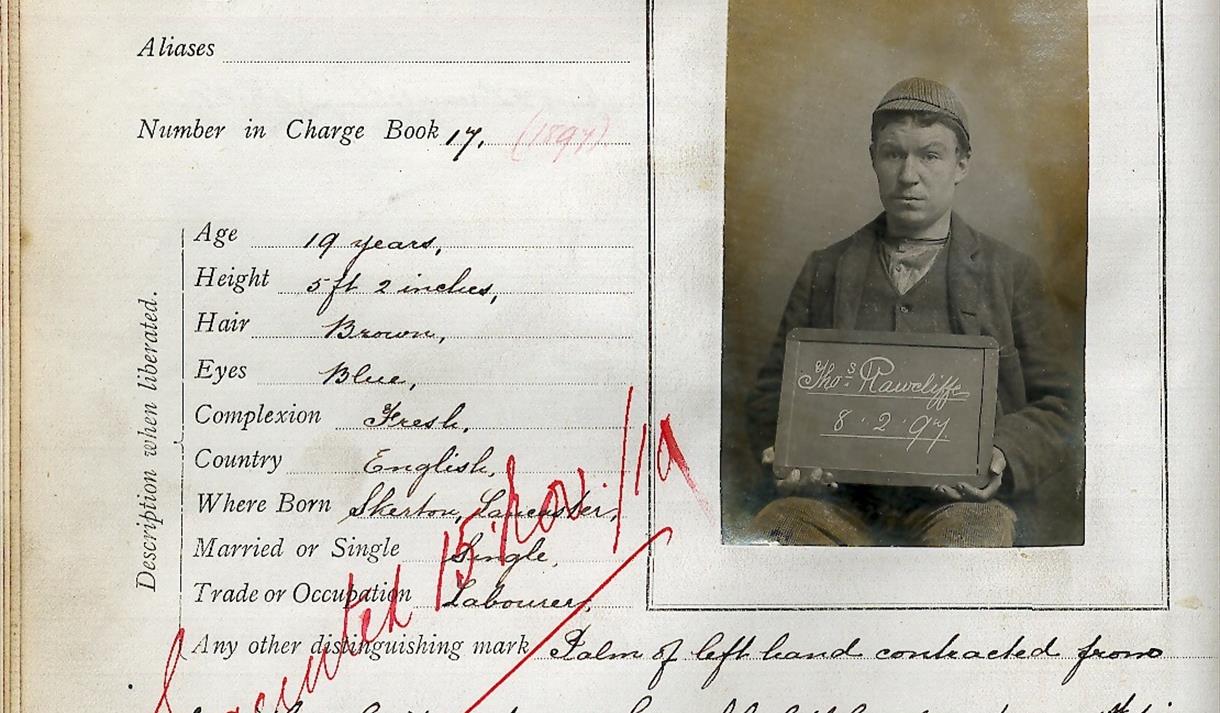 Aliases
Number in Charge Book 17, (1897)
Description when liberated.
Age 19 years,
Height 5 ft 2 inches,
Hair Brown,
Eyes Blue,
Complexion Fresh,
Country English,
Where Born Skerton, Lancaster,
Married or Single Single,
Trade or Occupation Labourer,
Any other distinguishing mark Palm of left hand contracted from
Executed 15 Nov./19
Thos Rawcliffe
8.2.97